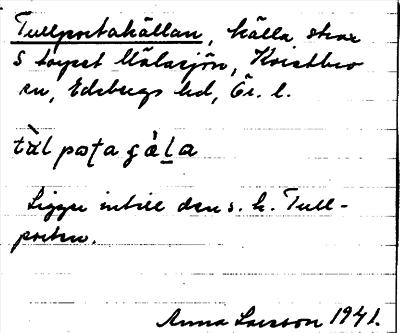 Tullportakällan, källa strax
S torpet Målasjön, Kvistbro
sn, Edsbergs hd, Ör. l.
tàl pαʈa gàḷa
Ligger intill den s. k. Tull-
porten.
Anna Larsson 1941.